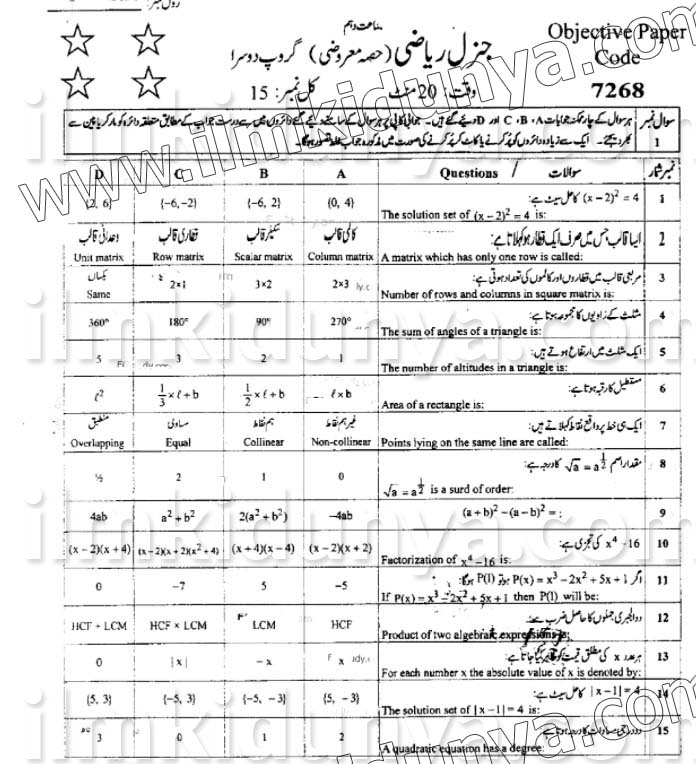 رول نمبر:
جماعت دہم
Objective Paper
Code
7268
جنرل ریاضی (حصہ معروضی) گروپ دوسرا
وقت: 20 منٹ کل نمبر: 15
سوال نمبر 1
ہر سوال کے چار ممکنہ جوابات A، B، C اور D دیئے گئے ہیں۔ جوابی کاپی پر ہر سوال کے سامنے دیئے گئے دائروں میں سے درست جواب کے مطابق متعلقہ دائرہ کو مارکر یا پین سے
بھر دیجئے۔ ایک سے زیادہ دائروں کو پُر کرنے یا کاٹ کر پُر کرنے کی صورت میں مذکورہ جواب غلط تصور ہوگا۔
D C B A Questions / سوالات نمبر شمار
{2, 6} {-6, -2} {-6, 2} {0, 4} (x – 2)² = 4 کا حل سیٹ ہے: 1
The solution set of (x – 2)² = 4 is:
وحدانی قالب قطاری قالب سکیلر قالب کالمی قالب ایسا قالب جس میں صرف ایک قطار ہو کہلاتا ہے: 2
Unit matrix Row matrix Scalar matrix Column matrix A matrix which has only one row is called:
یکساں مربعی قالب میں قطاروں اور کالموں کی تعداد ہوتی ہے: 3
Same 2×1 3×2 2×3 Number of rows and columns in square matrix is:
360° 180° 90° 270° مثلث کے زاویوں کا مجموعہ ہوتا ہے: 4
The sum of angles of a triangle is:
5 3 2 1 ایک مثلث میں ارتفاع ہوتے ہیں: 5
The number of altitudes in a triangle is:
ℓ² 1/3 × ℓ + b 1/2 × ℓ + b ℓ × b مستطیل کا رقبہ ہوتا ہے: 6
Area of a rectangle is:
منطبق مساوی ہم نقاط غیر ہم نقاط ایک ہی خط پر واقع نقاط کہلاتے ہیں: 7
Overlapping Equal Collinear Non-collinear Points lying on the same line are called:
½ 2 1 0 مقدار اصم √a = a^½ کا درجہ ہے: 8
√a = a^½ is a surd of order:
4ab a² + b² 2(a² + b²) –4ab (a + b)² – (a – b)² = : 9
(x – 2)(x + 4) (x – 2)(x + 2)(x² + 4) (x + 4)(x – 4) (x – 2)(x + 2) x⁴ –16 کی تجزی ہے: 10
Factorization of x⁴ –16 is:
0 –7 5 –5 اگر P(x) = x³ – 2x² + 5x + 1 ہو تو P(1) ہوگا: 11
If P(x) = x³ – 2x² + 5x + 1 then P(1) will be:
HCF + LCM HCF × LCM LCM HCF دو الجبری جملوں کا حاصل ضرب ہے: 12
Product of two algebraic expressions is:
0 |x| – x x ہر عدد x کی مطلق قیمت کو ظاہر کیا جاتا ہے: 13
For each number x the absolute value of x is denoted by:
{5, 3} {–5, 3} {–5, –3} {5, –3} |x – 1| = 4 کا حل سیٹ ہے: 14
The solution set of |x – 1| = 4 is:
3 0 1 2 دو درجی مساوات کا درجہ ہوتا ہے: 15
A quadratic equation has a degree:
www.ilmkidunya.com
ilmkidunya.com
ilmkidunya.com
ilmkidunya.com
ilmkidunya.com